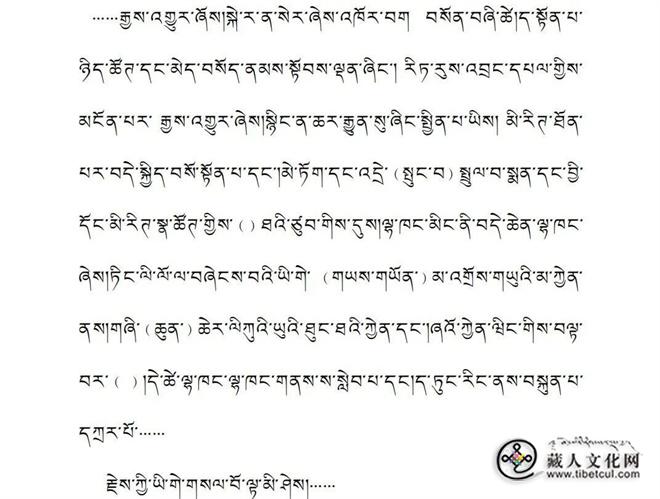 ……རྒྱས་འགྱུར་ཞོས།སྐེ་ར་ན་སེར་ཞེས་འཁོར་བག བསོན་བཞི་ཚེ།ད་སྟོན་པ་
ཉིད་ཚོཏ་དང་མེད་བསོད་ནམས་སྟོབས་ལྡན་ཞིང་། རིཏ་རུས་འབྲང་དཔལ་གྱིས་
མངོན་པར་ རྒྱས་འགྱུར་ཞེས།སྙིང་ན་ཆར་རྒྱུན་སུ་ཞིང་སྦྱིན་པ་ཡིས། མི་རིཏ་ཐོན་
པར་བདེ་སྐྱིད་བསོ་སྟོན་པ་དང་།མེ་ཏོག་དང་འདྲེ་（སྲུང་བ）སྤྲུལ་བ་སྨན་དང་བྱི་
དོང་མི་རིཏ་སྣ་ཚོཏ་གྱིས་（ ）ཐའི་ཙུབ་གིས་དུས།ལྷ་ཁང་མིང་ནི་བདེ་ཆེན་ལྷ་ཁང་
ཞེས།ཏིང་ལི་ལོ་ལ་བཞེངས་བའི་ཡི་གེ་ （གཡས་གཡོན་）མ་འགྲོས་གཡུའི་མ་ཀྱེན་
ནས།གཞི་（ཆུན་）ཆེར་ལིཀུའི་ཡུའི་ཐུང་ཐའི་ཀྱེན་དང་།ཞའོ་ཀྱེན་ཝིང་གིས་བལྟ་
བར་（ ）།དེ་ཚེ་ལྷ་ཁང་ལྷ་ཁང་གནས་ས་སླེབ་པ་དང་།ད་ཏུང་རིང་ནས་བསྐུན་པ་
དཀྲར་པོ་……
རྗེས་ཀྱི་ཡི་གེ་གསལ་བོ་ལྟ་མི་ཤེས།……
藏人文化网
www.tibetcul.com